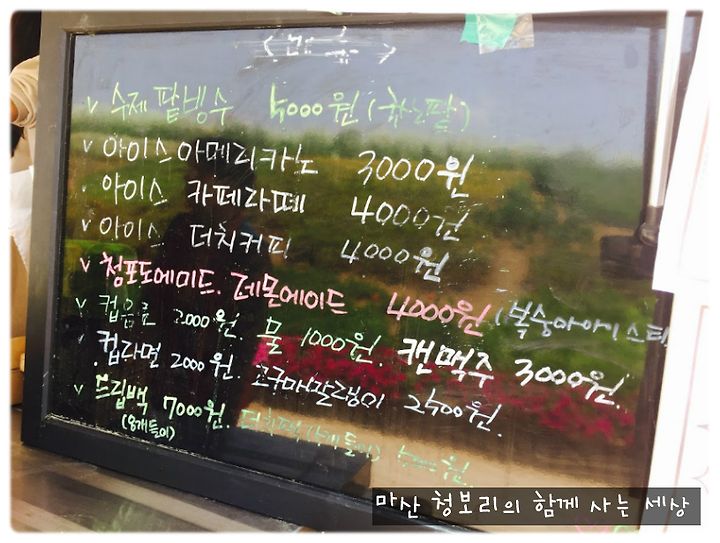 <메뉴>
v 수제 팥빙수 5000원 (
v 아이스아메리카노 3000원
아이스 카페라떼 4000원
v 아이스 더치커피 4000원
v 청포도에이드. 레몬에이드 4000원 (복숭아아이스티)
v 컵음료 2000원. 물 1000원. 캔맥주 3000원.
컵라면 2000원. 고구마말랭이 2500원.
v 드립백 7000원. 더치팩
마산 청보리의 함께 사는 세상